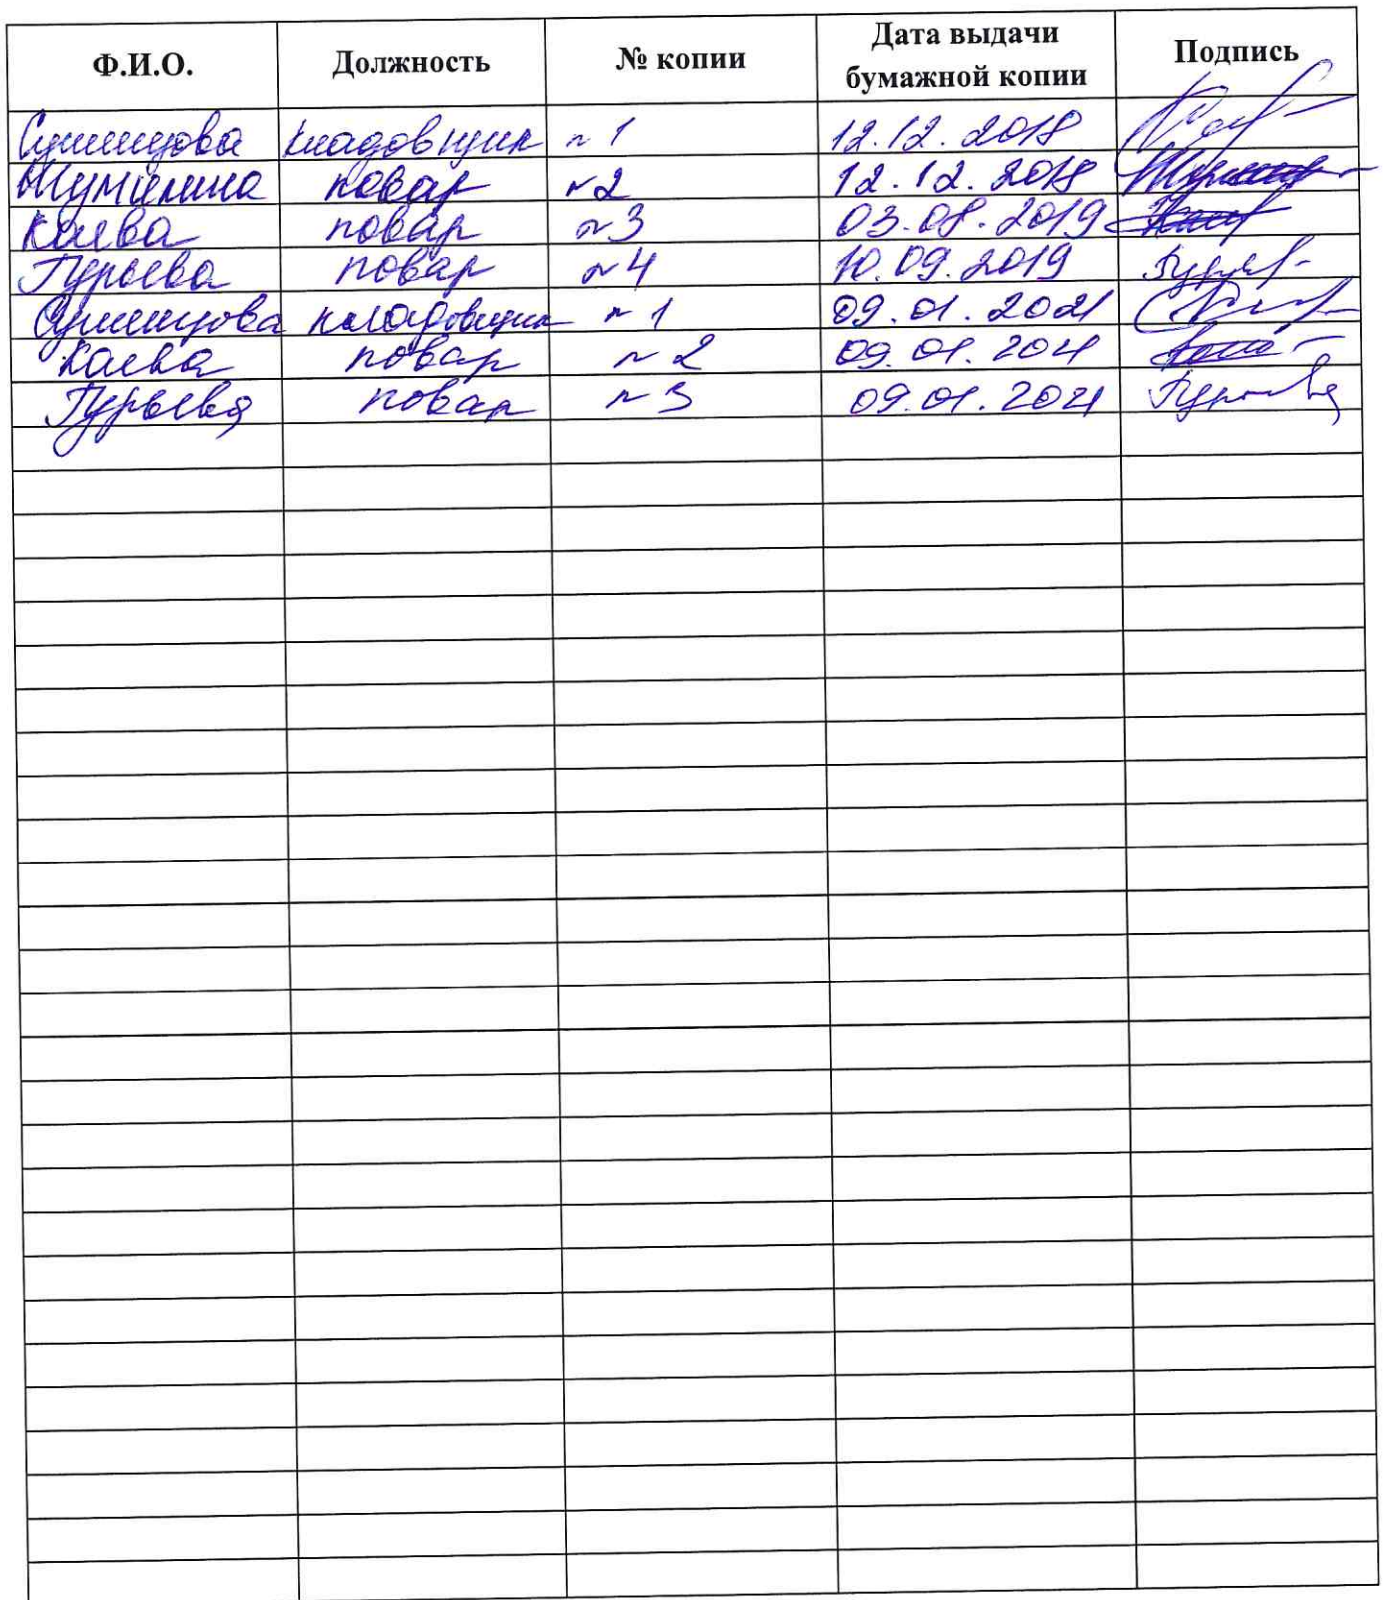 Ф.И.О. Должность № копии Дата выдачи бумажной копии Подпись
кладовщик №1 12.12.2018
Шумилина повар №2 12.12.2018
Каева повар №3 03.08.2019
Гурьева повар №4 10.09.2019
кладовщик №1 09.01.2021
Каева повар №2 09.01.2021
Гурьева повар №3 09.01.2021